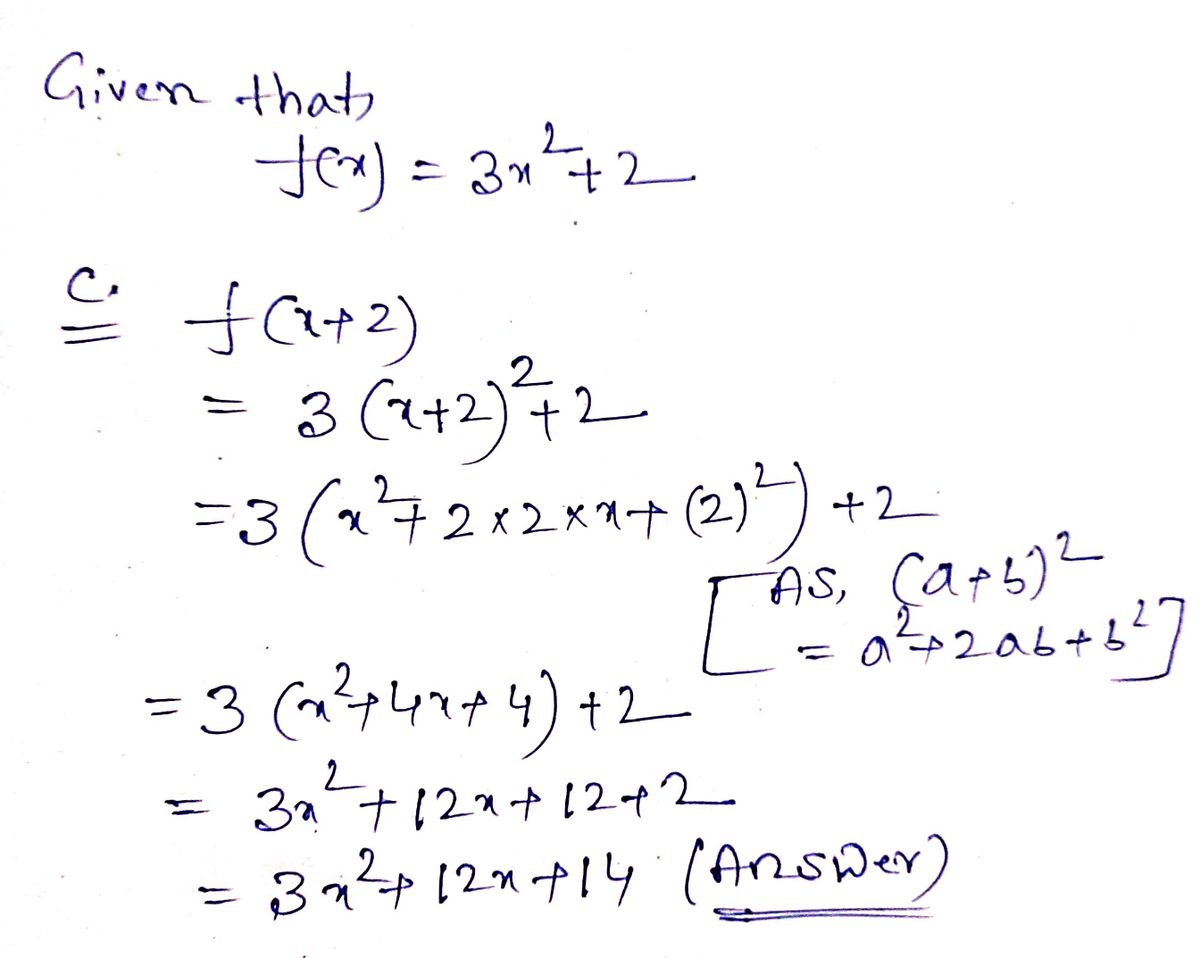 Given that,
f(x) = 3x²+2
C. f(x+2)
= 3(x+2)²+2
=3(x²+2×2×x+(2)²)+2
[AS, (a+b)²
= a²+2ab+b²]
=3(x²+4x+4)+2
= 3x²+12x+12+2
= 3x²+12x+14 (Answer)